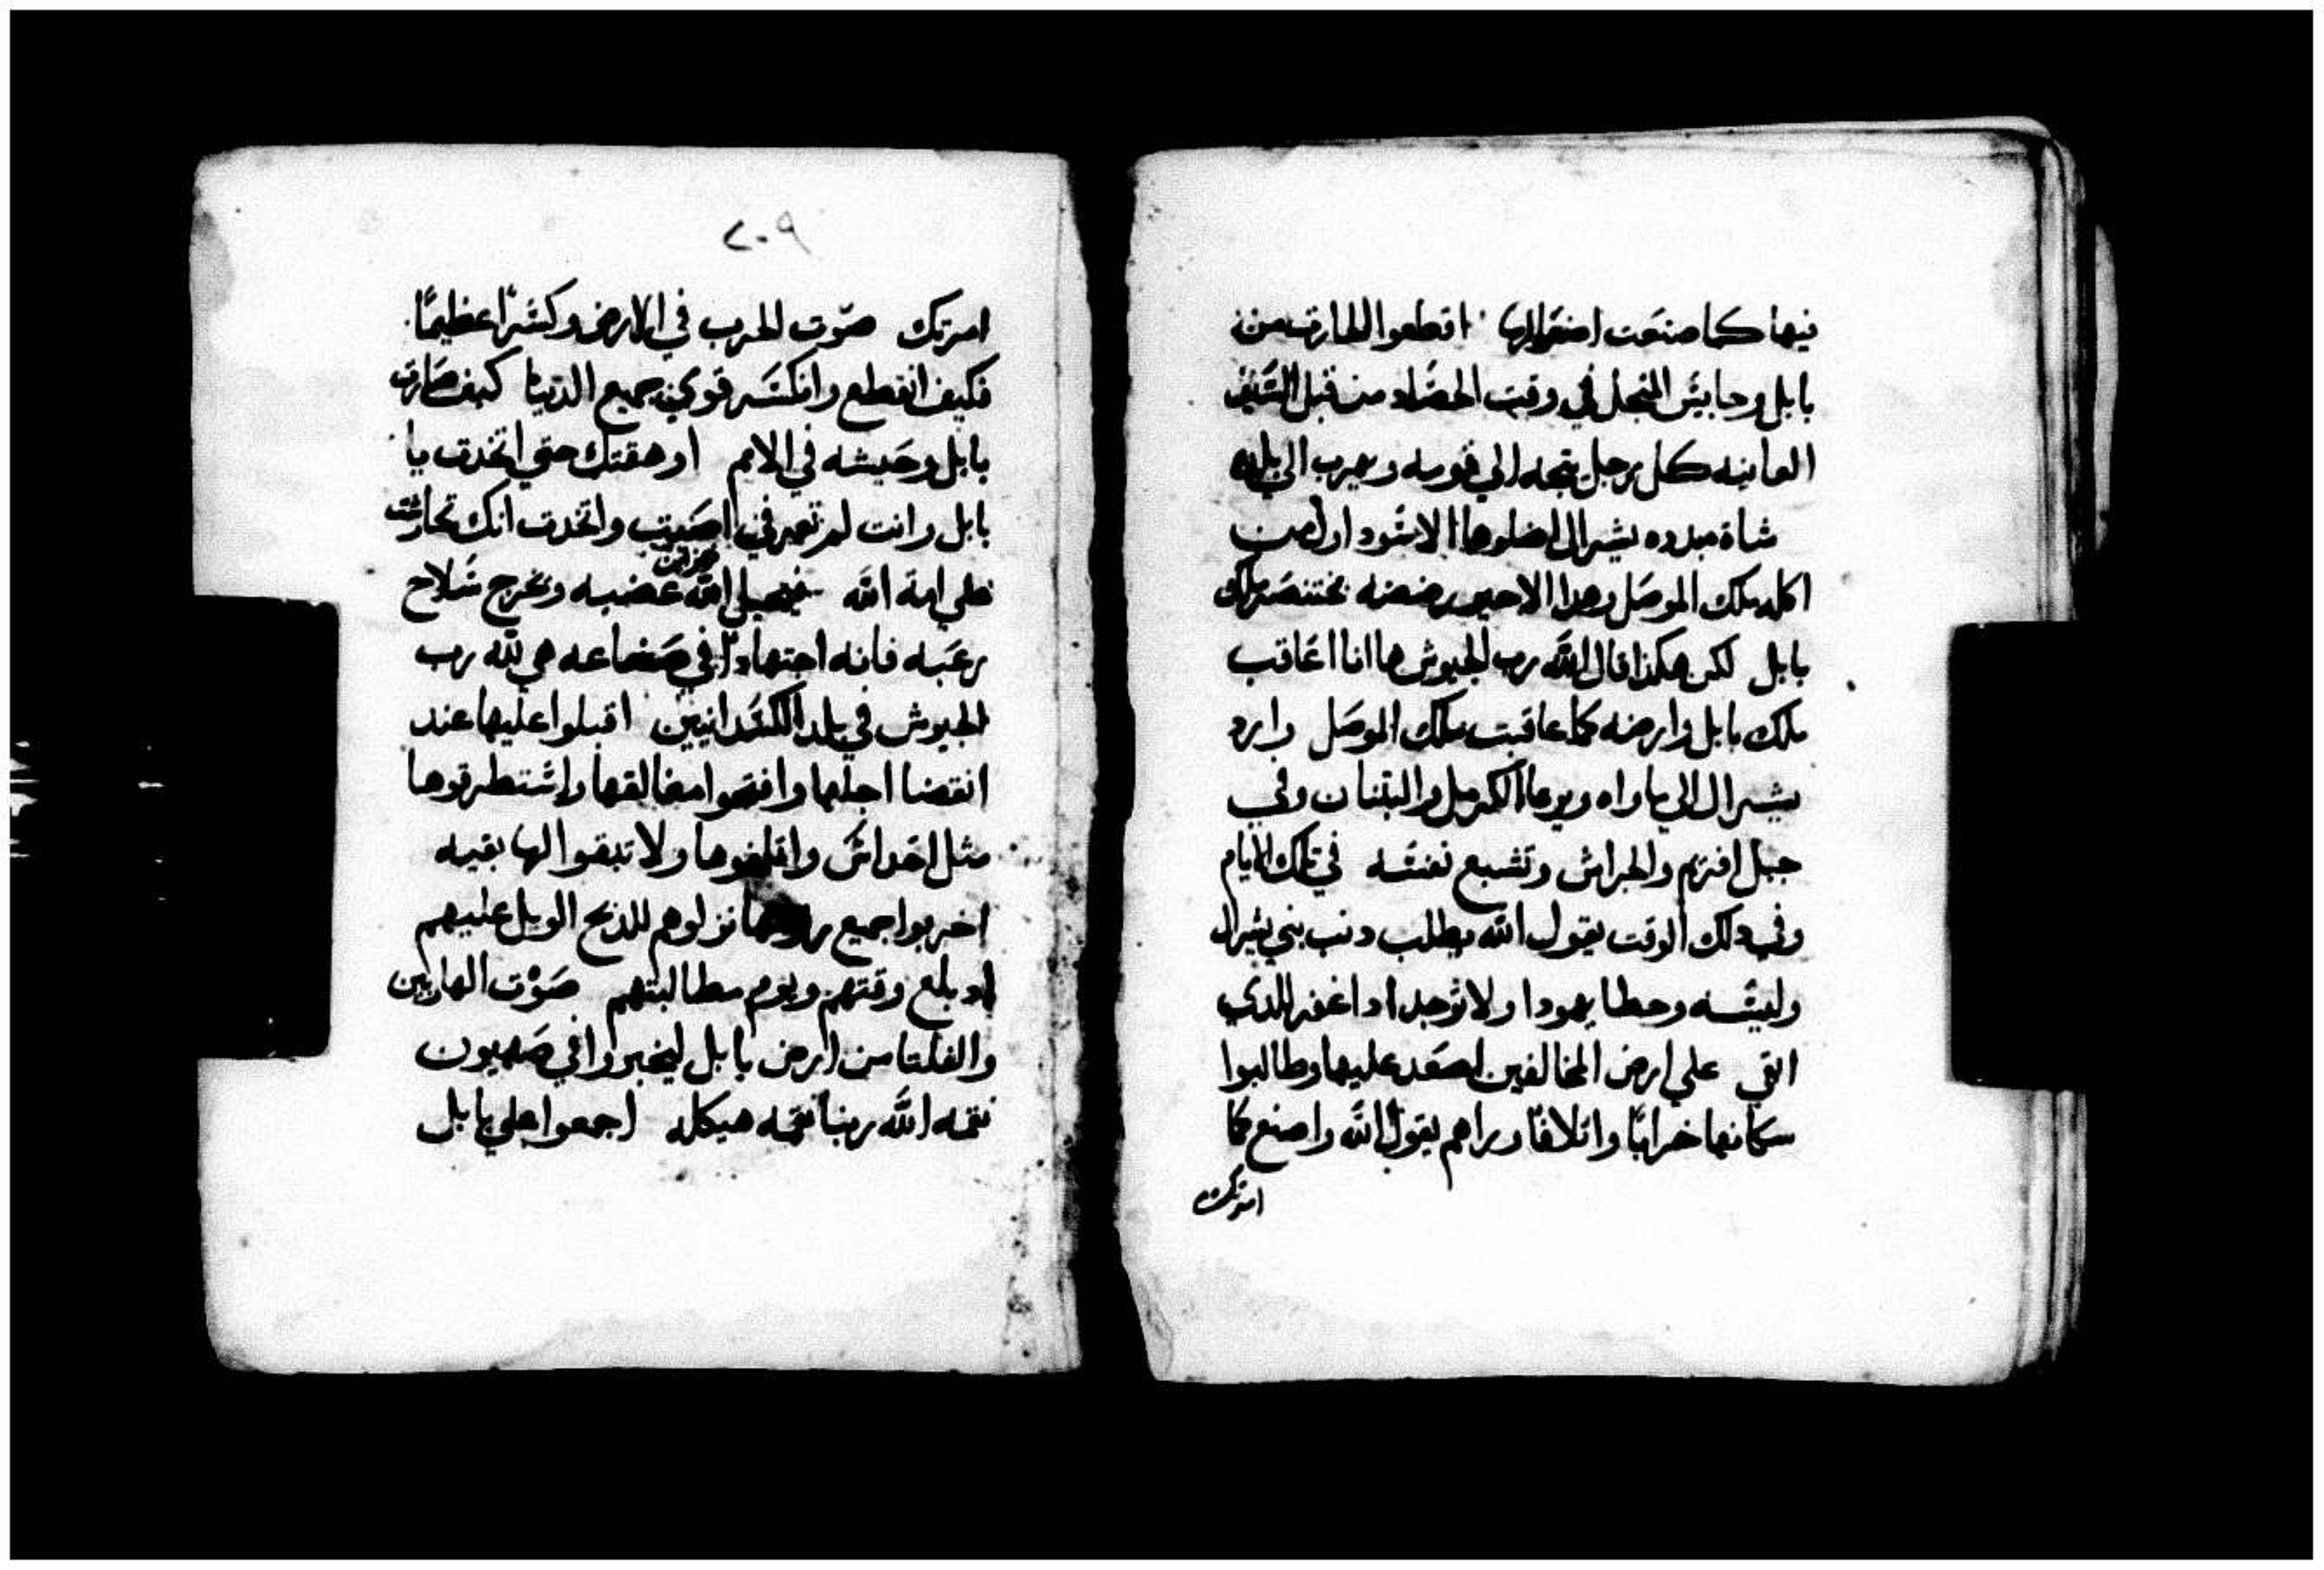 فيها كما صنعت اصنعوا لها اقطعوا الحارت من
بابل وحابيس المنجل في وقت الحصاد من قبل السيف
العاينه كل رجل يتجه الي قومه ويهرب الي بلده
شاة مبدده يشرال اضلوها الاسود اولا من
اكله ملك الموصل وهدا الاحير رضضه بختنصر ملك
بابل لكن هكذا قال الله رب الجيوش ها انا اعاقب
ملك بابل وارضه كما عاقبت ملك الموصل وارد
يشرال الي ماواه ويرعا الكرمل والبثنان وفي
جبل افرىم والجراش وتشبع نفسه في تلك الايام
وفي دلك الوقت يقول الله يطلب دنب بني يشرال
وليسه وحطا يهودا ولا توجد ادا اغفر للدي
ابقي علي ارض المخالفين اصعد عليها وطالبوا
سكانها خرابًا واتلافًا وراهم يقول الله واصنع كما
امرتك
٢٠٩
امرتك صوت الحرب في الارض وكسرًا عظيمًا
فكيف انقطع وانكسر قوي جميع الدنيا كيف صارت
بابل وحيشه في الامم اوهقتك حتي اتخدت يا
بابل وانت لم تعرفي اصبت واتخدت انك تحارشت
علي امة الله خزاين
الله غضبه وتخرج سلاح
رعبه فانه اجتهادًا في صناعه هي لله رب
الجيوش في بلد الكلدانيين اقبلوا عليها عند
انقضا اجلها وافتحوا مغالقها واستطرقوها
مثل اكداس واتلفوها ولا تبقوا لها بقيه
اخربوا جميع نزلوهم للدبح الويل عليهم
اد بلع وقتهم ويوم مطالبتهم صوت الهاربين
والفلتا من ارض بابل ليخبروا في صهيون
نقمه الله ربنا نقمه هيكله اجمعوا علي بابل